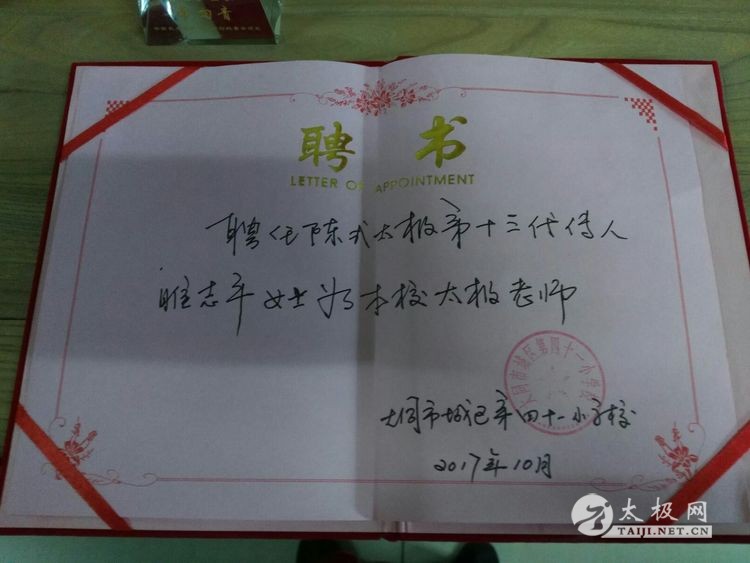 聘书
LETTER OF APPOINTMENT
聘任陈式太极第十三代传人
志平女士为本校太极老师
大同市城区第四十一小学校
大同市城区第四十一小学校
2017年10月
太极网
TAIJI.NET.CN